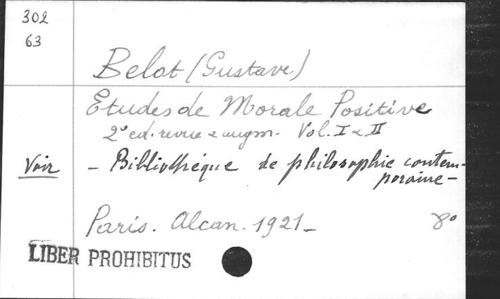 302
63
Belot (Gustave)
Etudes de Morale Positive
2e ed. revue & augm. Vol. I & II
Voir – Bibliothèque de philosophie contem-
poraine –
Paris. Alcan. 1921 – 8°
LIBER PROHIBITUS